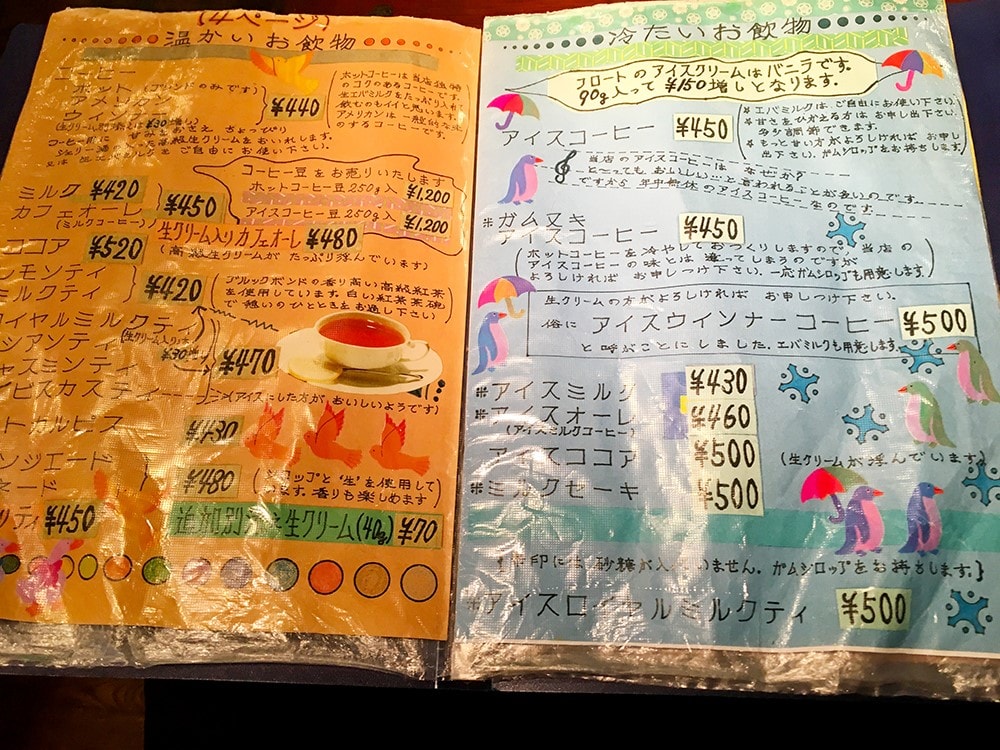 (4ページ)
温かいお飲物
コーヒー
ホット(ブレンドのみです)
アメリカン
ウィンナー
¥440
ホットコーヒーは当店独特
のコクのあるコーヒーです。
生エバミルクをたっぷり入れて
飲むのもイイと思います。
アメリカンは一般的な
のするコーヒーです。
ご自由にお使い下さい。
コーヒー豆をお売りいたします
ホットコーヒー豆250g入 ¥1,200
アイスコーヒー豆250g入 ¥1,200
ミルク ¥420
カフェオーレ ¥450
(ミルクコーヒー)
生クリーム入りカフェオーレ ¥480
(高級生クリームがたっぷり浮んでいます)
ココア ¥520
レモンティ
ミルクティ
¥420
ブルックボンドの香り高い高級紅茶
を使用しています。白い紅茶茶碗
で憩いのひとときをお過し下さい
ロイヤルミルクティ
シアンティ
(生クリーム入り)
¥30増し
ジャスミンティ
¥470
イビスカスティ
(アイスにした方が、おいしいようです)
トカルピス ¥430
ンジエード
ネード
¥480
(シロップと“生”を使用して
ます。香りも楽しめます)
ティ ¥450
追加別 生クリーム(40g) ¥70
冷たいお飲物
フロートのアイスクリームはバニラです。
90g入って¥150増しとなります。
アイスコーヒー ¥450
*エバミルクは、ご自由にお使い下さい。
*甘さをひかえる方はお申し出下さい。
多少調節できます。
*もっと甘い方がよろしければお申し
出下さい。ガムシロップをお持ちします
当店のアイスコーヒーは なぜか?
と~ってもおいしいことと言われることが多いのです。
ですから年中無休のアイスコーヒー生のです
※ガムヌキ
アイスコーヒー ¥450
(ホットコーヒーを冷やしておつくりしますので、当店の
アイスコーヒーの味とは違ってしまうのですが
よろしければ お申しつけ下さい。一応ガムシロップも用意します)
生クリームの方がよろしければ お申しつけ下さい。
俗に アイスウインナーコーヒー ¥500
と呼ぶことにしました。エバミルクも用意します。
※アイスミルク ¥430
※アイスオーレ ¥460
(アイスミルクコーヒー)
アイスココア ¥500
(生クリームが浮んでいます)
※ミルクセーキ ¥500
(※印には砂糖が入っていません。ガムシロップをお持ちします。)
※アイスロイヤルミルクティ ¥500